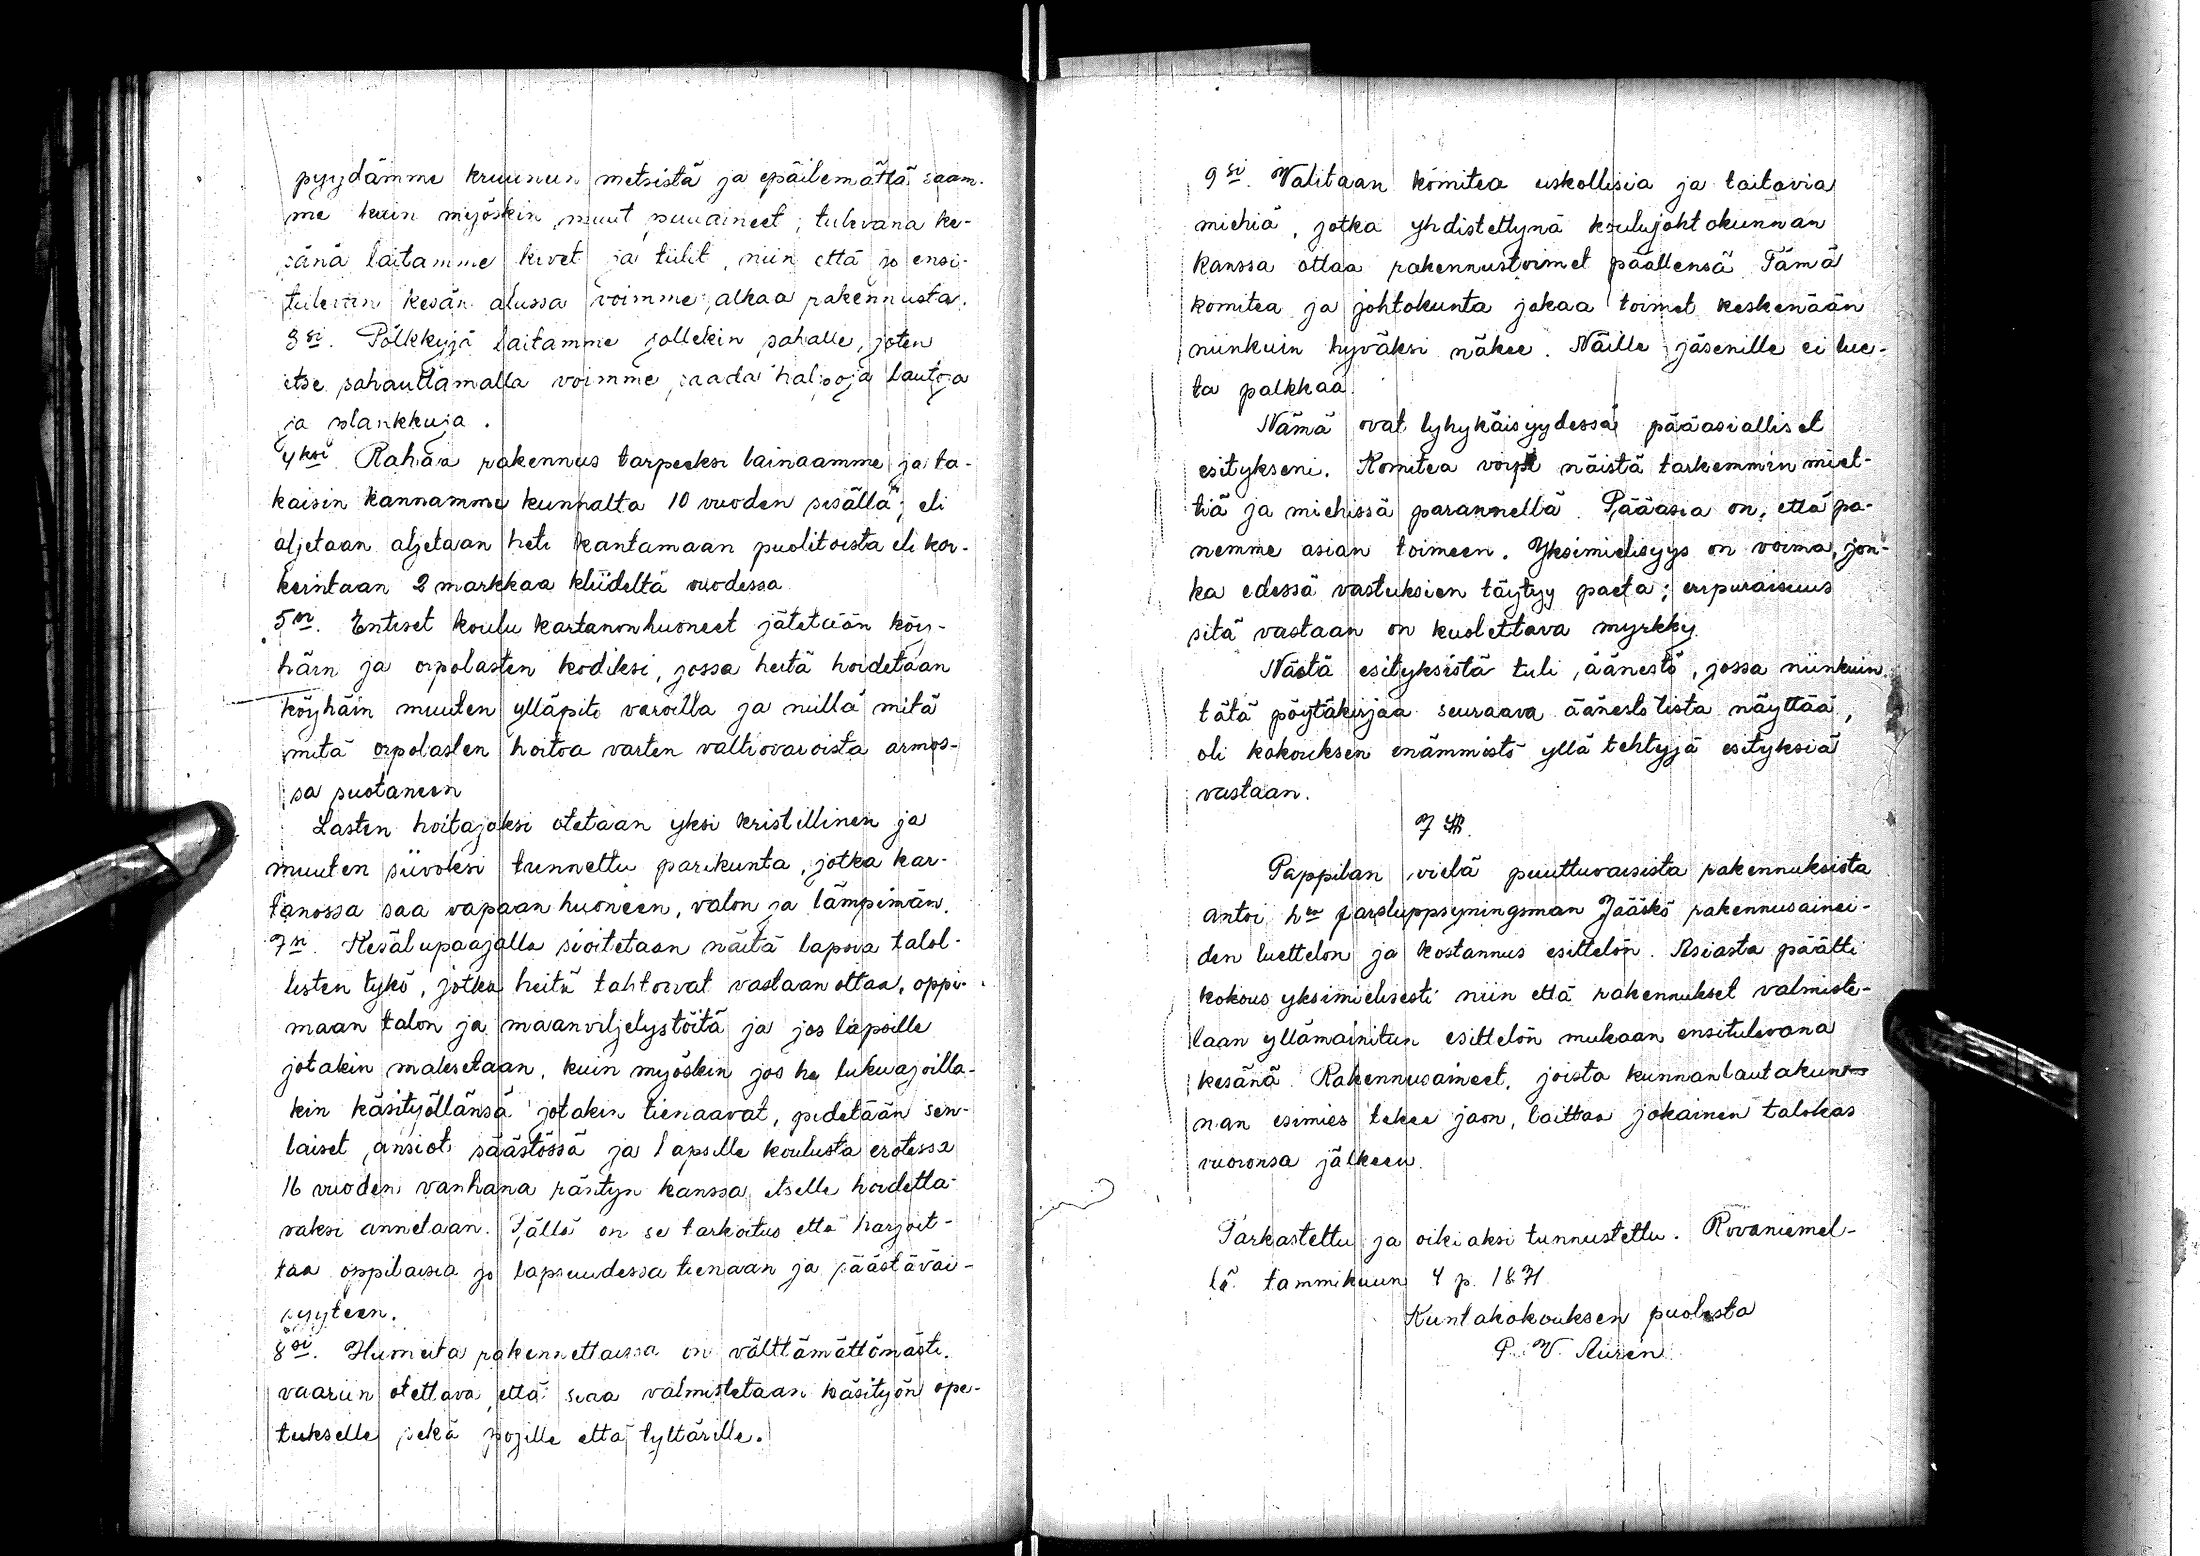 pyydämme kruunun metsistä ja epäilemättä saam-
me kuin myöskin muut puuaineet; tulevana ke-
sänä laitamme kivet ja tiilit, niin että jo ensi-
tulevan kesän alussa voimme alkaa rakennusta.
3si. Pölkkyjä laitamme jollekin sahalle, joten
itse sahauttamalla voimme saada halpoja lautoja
ja plankkuja.
4ksi Rahaa rakennus tarpeeksi lainaamme ja ta-
kaisin kannamme kunnalta 10 vuoden sisällä; eli
aljetaan aljetaan heti kantamaan puolitoista eli kor-
keintaan 2 markkaa kliideltä vuodessa
5si. Entiset koulu kartanonhuoneet jätetään köy-
häin ja orpolasten kodiksi, jossa heitä hoidetaan
köyhäin muuten ylläpito varoilla ja niillä mitä
mitä orpolasten hoitoa varten valtiovaroista armos-
sa suotaneen
Lasten hoitajaksi otetaan yksi kristillinen ja
muuten siivoksi tunnettu parikunta, jotka kar-
tanossa saa vapaan huoneen, valon ja lämpimän.
7si. Kesälupaajalla sioitetaan näitä lapsia talol-
listen tykö, jotka heitä tahtovat vastaanottaa, oppi-
maan talon ja maanviljelystöitä ja jos lapsille
jotakin maksetaan, kuin myöskin jos he lukuajoilla-
kin käsityöllänsä jotakin tienaavat, pidetään sen-
laiset ansiot säästössä ja lapsille koulusta erotessa
16 vuoden vanhana räntyn kanssa itselle hoidetta-
vaksi annetaan. Tällä on se tarkoitus että harjoit-
taa oppilaisia jo lapsuudessa tienaan ja säästäväi-
syyteen.
8si. Huoneita rakennettaissa on välttämättömästi
vaariin otettava, että siaa valmistetaan käsityön ope-
tukselle sekä pojille että tyttärille.
9si. Valitaan komitea uskollisia ja taitavia
miehiä, jotka yhdistettynä koulujohtokunnan
kanssa ottaa rakennustoimet päällensä Tämä
komitea ja johtokunta jakaa toimet keskenään
niinkuin hyväksi näkee. Näille jäsenille ei lue-
ta palkkaa.
Nämä ovat lyhykäisyydessä pääasialliset
esitykseni. Komitea voipi näistä tarkemmin miet-
tiä ja miehissä parannella. Pääasia on, että pa-
nemme asian toimeen. Yksimielisyys on voima, jon-
ka edessä vastuksien täytyy paeta; eripuraisuus
sitä vastaan on kuolettava myrkky.
Nästä esityksistä tuli äänestö, jossa niinkuin
tätä pöytäkirjaa seuraava äänestölista näyttää,
oli kokouksen enämmistö yllä tehtyjä esityksiä
vastaan.
7 §.
Pappilan vielä puuttuvaisista rakennuksista
antoi hra Jääskö rakennusainei-
den luettelon ja kostannus esittelön. Asiasta päätti
kokous yksimielisesti niin että rakennukset valmiste-
laan yllämainitun esittelön mukaan ensitulevana
kesänä. Rakennusaineet, joista kunnanlautakun
nan esimies tekee jaon, laittaa jokainen talokas
vuoronsa jälkeen.
Tarkastettu ja oikiaksi tunnustettu. Rovaniemel-
lä tammikuun 4 p. 1871
Kuntakokouksen puolesta
P. W. Aurén